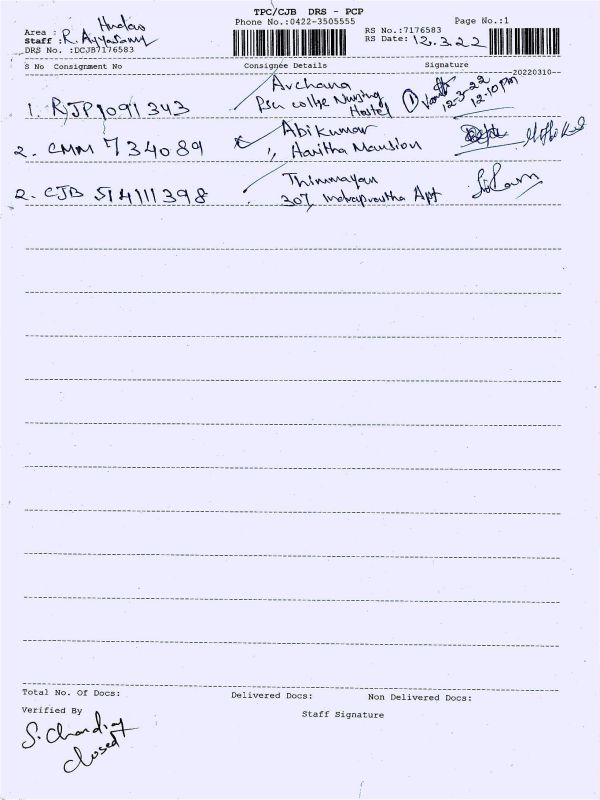 TPC/CJB DRS - PCP
Phone No.:0422-3505555 Page No.:1
Area :
Staff : R. Ayyasamy
DRS No. :DCJB7176583
RS No.:7176583
RS Date: 12.3.22
S No Consignment No Consignee Details Signature
20220310
1. RJP1091343 Archana 12-3-22
PSG Nursing Hostel 1 12.10pm
2. CMM 734089 Abikumar
" Haritha Mansion
2. CJB 514111398 Thimmayan
307 Apt
Total No. Of Docs: Delivered Docs: Non Delivered Docs:
Verified By Staff Signature
closed